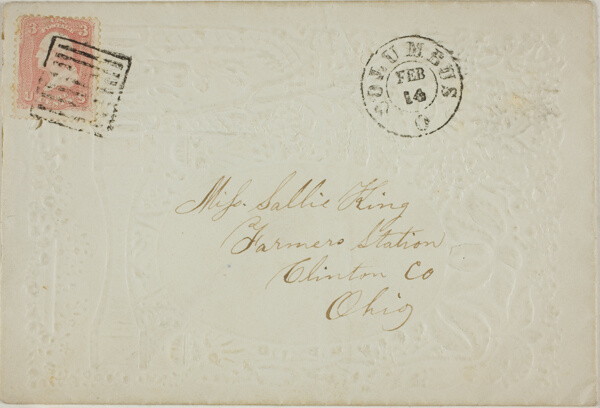 3 3
COLUMBUS O
FEB
14
Miss. Sallie King
Farmers Station
Clinton Co
Ohio